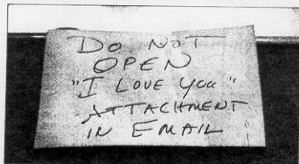 DO NOT
OPEN
"I LOVE YOU"
ATTACHMENT
IN EMAIL